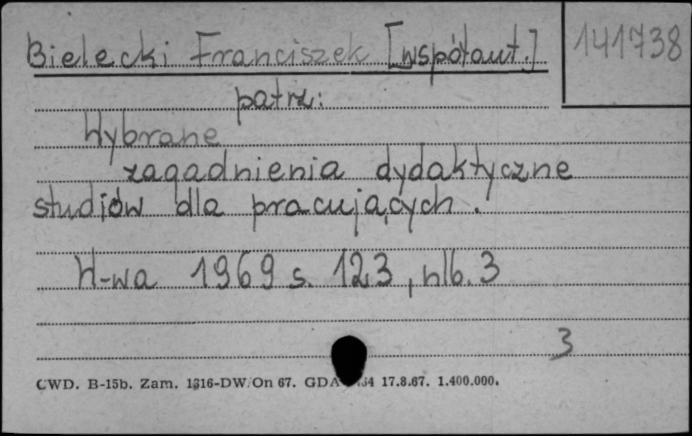 Bielecki Franciszek [współaut.] 141738
patrz:
Wybrane
zagadnienia dydaktyczne
studiów dla pracujących.
W-wa 1969 s. 123, nlb. 3
3
CWD. B-15b. Zam. 1316-DW/On 67. GDA 17.8.67. 1.400.000.